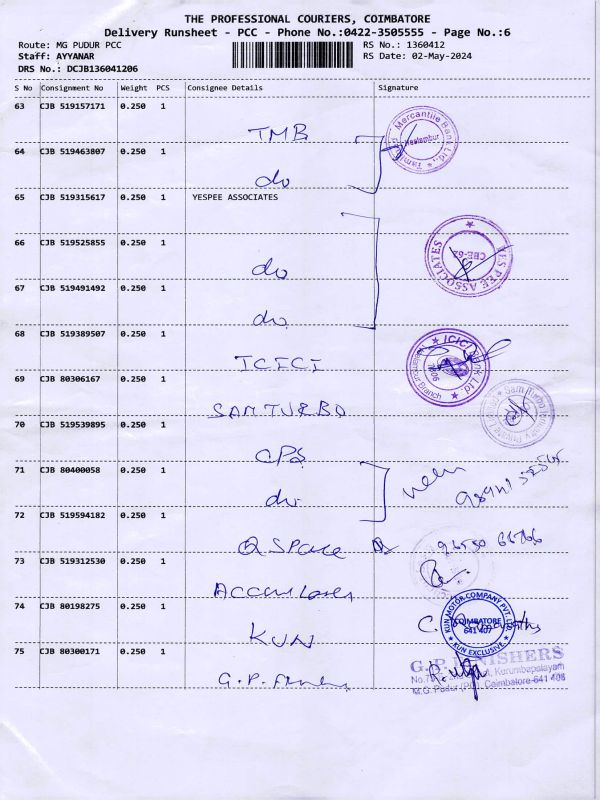 THE PROFESSIONAL COURIERS, COIMBATORE
Delivery Runsheet - PCC - Phone No.:0422-3505555 - Page No.:6
Route: MG PUDUR PCC
RS No.: 1360412
Staff: AYYANAR
RS Date: 02-May-2024
DRS No.: DCJB136041206
S No Consignment No Weight PCS Consignee Details Signature
63 CJB 519157171 0.250 1
TMB
Mercantile Bank Ltd.,
Neelambur
64 CJB 519463807 0.250 1
do
65 CJB 519315617 0.250 1 YESPEE ASSOCIATES
66 CJB 519525855 0.250 1
do
YES PEE ASSOCIATES
CBE-62
67 CJB 519491492 0.250 1
do
68 CJB 519389507 0.250 1
ICICI
ICICI Bank Ltd
Branch
69 CJB 80306167 0.250 1
SAM TURBO
Sam Turbo Industry Private Limited
70 CJB 519539895 0.250 1
CPS
71 CJB 80400058 0.250 1
do
72 CJB 519594182 0.250 1
Q SPace
96550 66766
73 CJB 519312530 0.250 1
74 CJB 80198275 0.250 1
KUN
KUN MOTOR COMPANY PVT. LTD
COIMBATORE
641 407
KUN EXCLUSIVE
75 CJB 80300171 0.250 1
G.P. FINISHERS
Kurumbapalayam
M.G. Pudur (PO), Coimbatore-641 406
G.P.